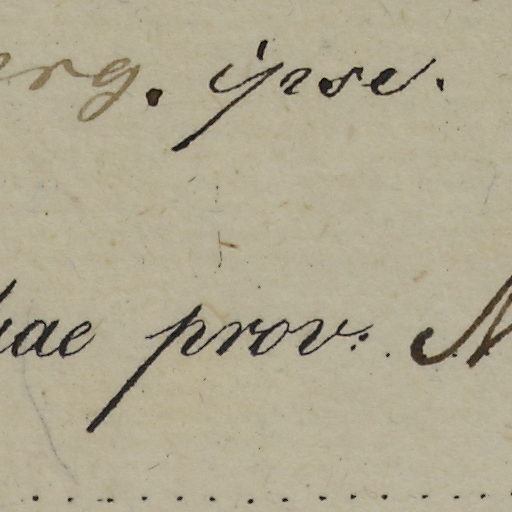 erg. ipse.
ae prov. N